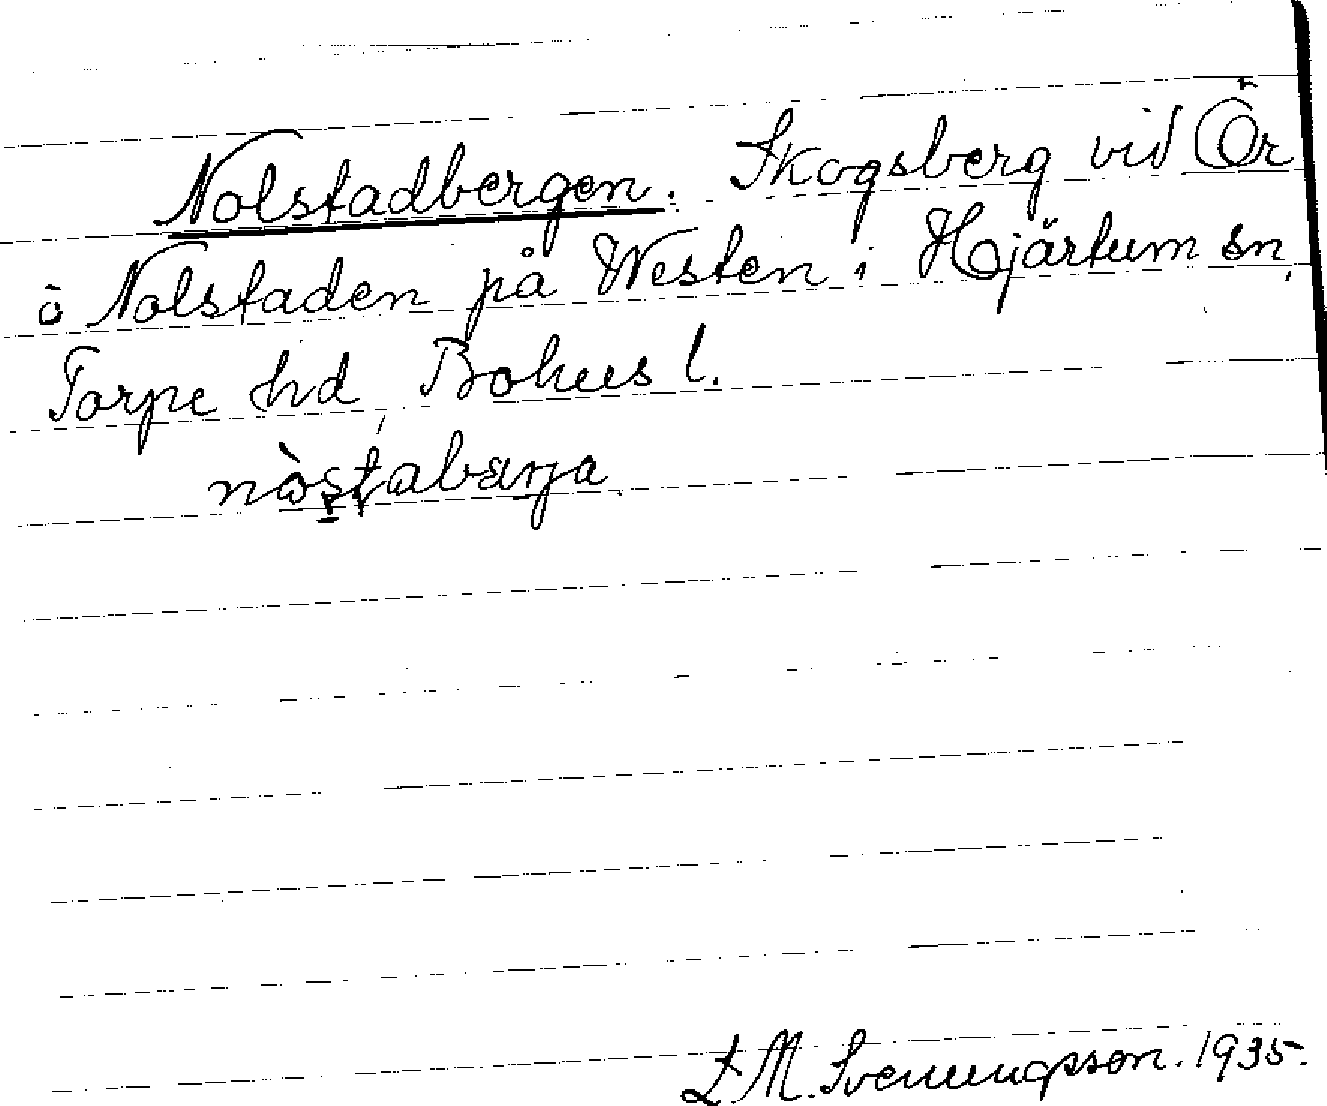 Nolstadbergen. Skogsberg vid Ör
ö Nolstaden på Westen i Hjärtum sn,
Torpe hd, Bohus l.
nòstabærja
L M. Svenungsson. 1935.